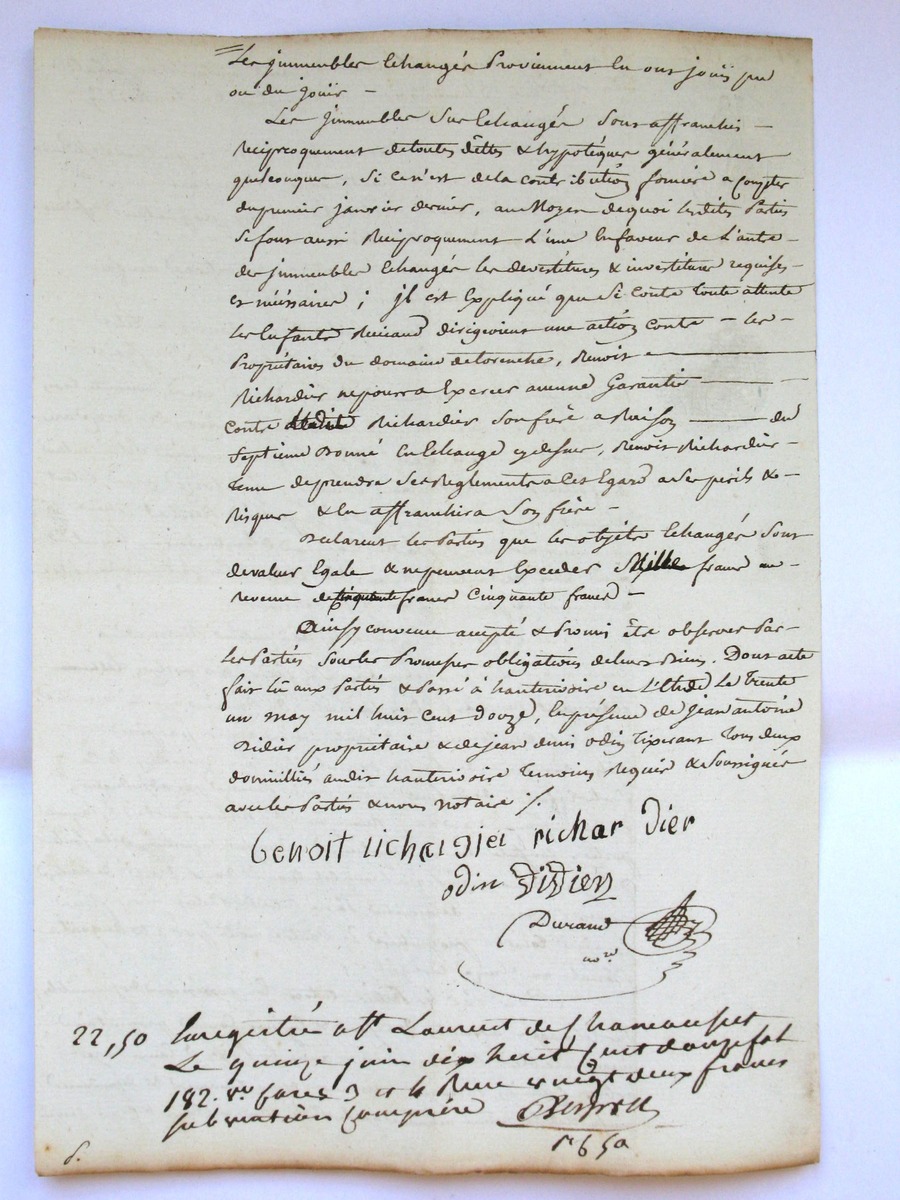 Les jmmeubles Echangés Proviennent En ont joüi pu
ou du joüir —
Les jmmeubles sus Echangés sont affranchis —
Reciproquement detoutes dêttes & hypotéques généralement
quelconques, si cen'est dela contribution fonciere a Compter
dupremier janvier dernier, au Moyen dequoi lesdites Parties
sefont aussi Reciproquement L'une Enfaveur de L'autre
des jmmeubles Echangés les devestitures & investitures requises
et nécéssaires ; jl est Expliqué que si contre toute attente
les Enfants dirigeoient une action contre — les —
Propriétaires du domaine de, Benoit —
Richardier nepourra Exercer aucune Garantie —
contre Richardier sonfrère a Raison — du
septieme Donné En Echange cydessus, Benoit Richardier
tenu deprendre ses Reglements a cet Egard a ses perils &
Risques & En affranchira son frère —
Declarent les Parties que les objets Echangés sont
devaleur Egale & nepeuvent Exceder Mille francs
revenu de cinquante francs Cinquante francs —
Ainsy convenu accepté & Promis être observer Par
les Parties sous les Promesses obligations deleurs Biens. Dont acte
fait lû aux Parties & Passé à hauterivoire en L'Etude Le trente
un may mil huit cent douze, En présence de jean antoine
Didier propriétaire & de jean denis odin tixerant tous deux
domiciliés audit hauterivoire temoins Requis & soussignés
avec les Parties & nous notaire ./.
benoit richardier richar dier
odin Didier
Durand
nore
22,50 Enregistré a St Laurent de Chamousset
Le quinze juin dix huit Cent douze fol
182. vo Cases 3 et 4 Reçu vingt deux francs
subvention Comprise